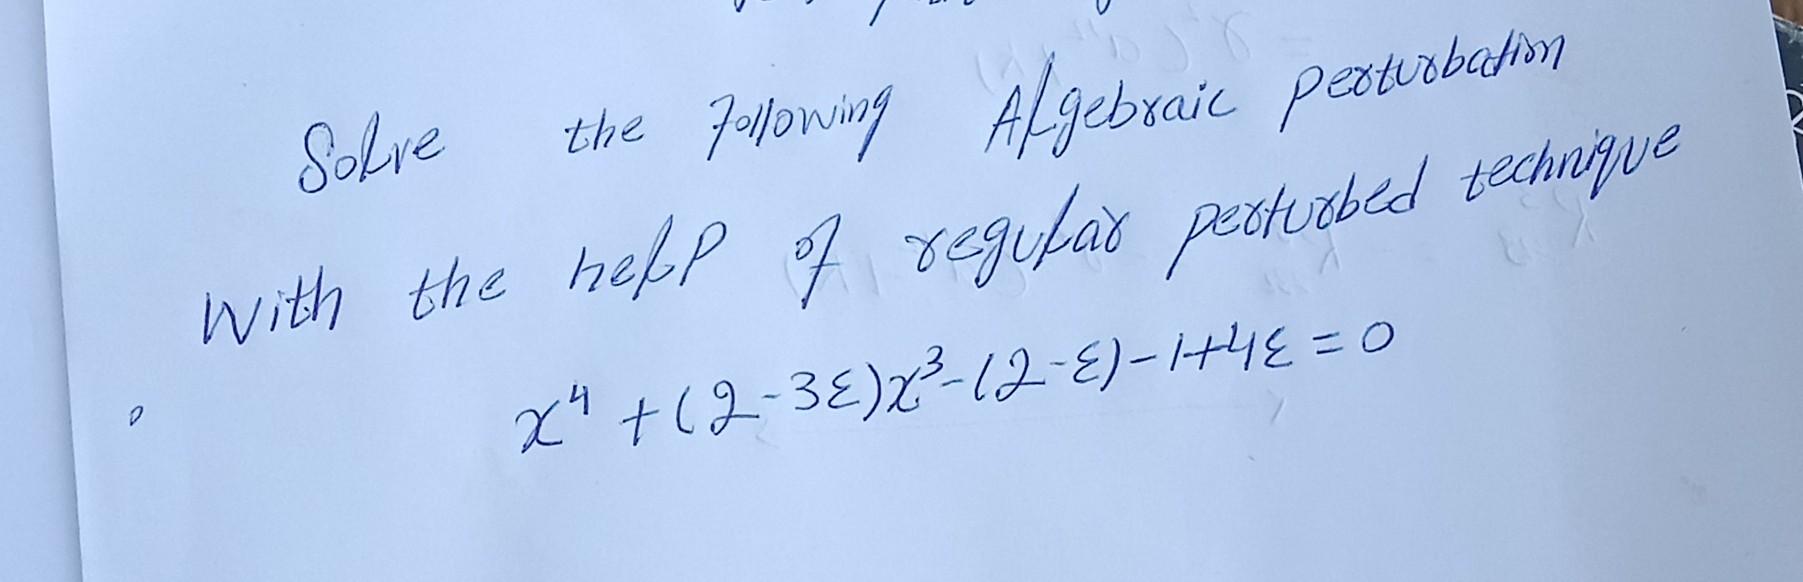 Solve the following Algebraic perturbation
With the help of regular perturbed technique
x⁴ + (2-3ε)x³-(2-ε)-1+4ε = 0